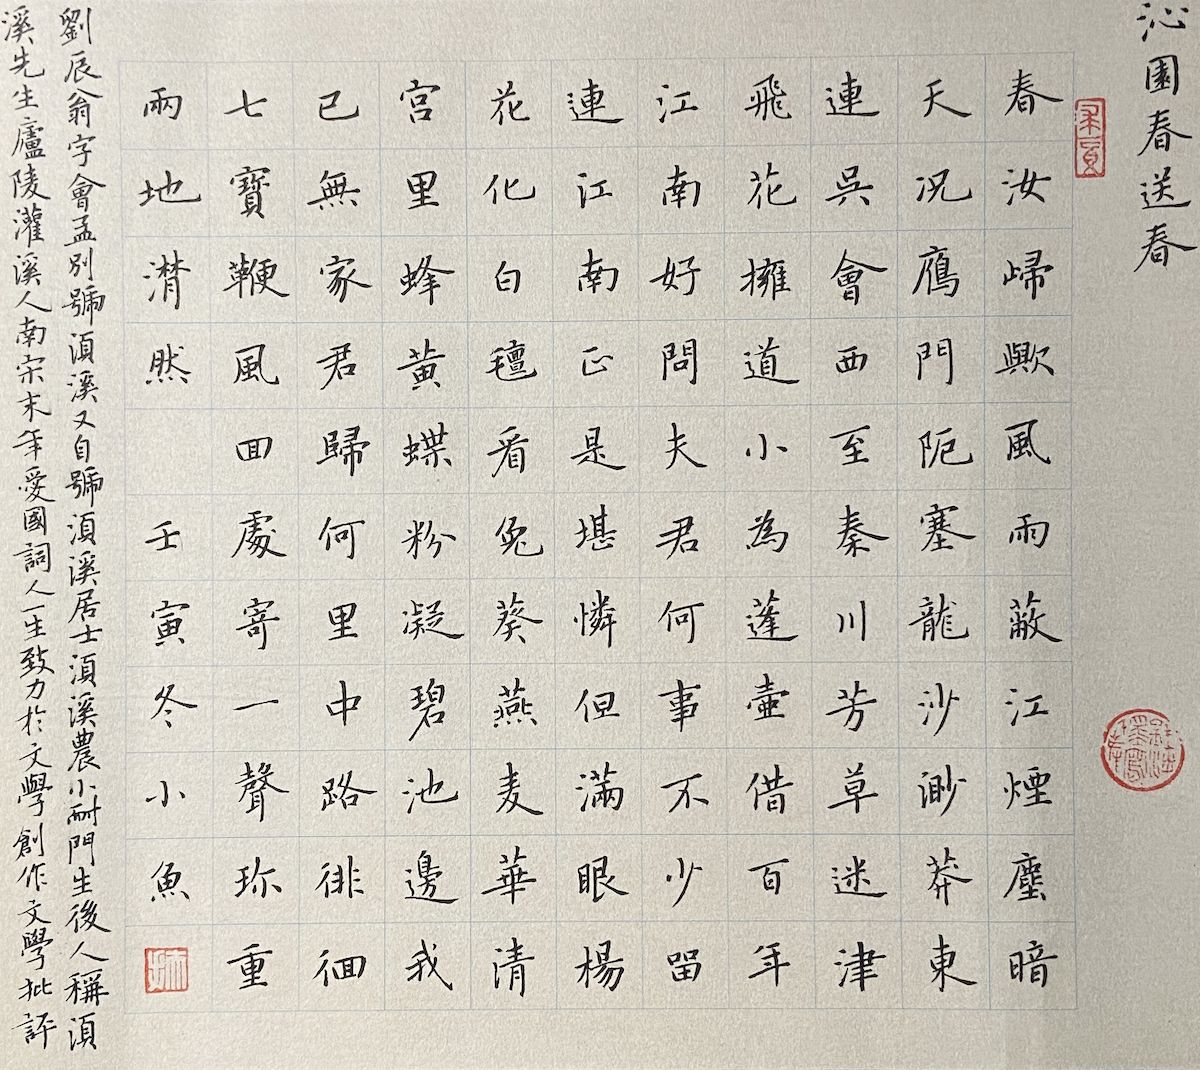 沁園春送春
春汝㱕歟風雨蔽江煙塵暗
天况鴈門阨塞龍沙渺莽東
連吳會西至秦川芳草迷津
飛花擁道小為蓬壺借百年
江南好問夫君何事不少留
連江南正是堪憐但滿眼楊
花化白氊看兔葵燕麦華清
宮里蜂黃蝶粉凝碧池邊我
已無家君歸何里中路徘徊
七寶鞭風囬處寄一聲珎重
兩地潸然 壬寅冬小魚
劉辰翁字會孟別號湏溪又自號湏溪居士湏溪農小耐門生後人稱湏
溪先生廬陵灌溪人南宋末年愛國詞人一生致力於文學創作文學批評